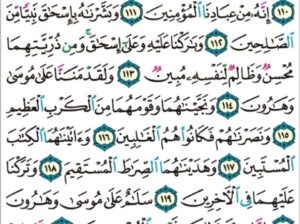 ١١٠ إِنَّهُۥ مِنْ عِبَادِنَا ٱلْمُؤْمِنِينَ ١١١ وَبَشَّرْنَٰهُ بِإِسْحَٰقَ نَبِيًّا مِّنَ
ٱلصَّٰلِحِينَ ١١٢ وَبَٰرَكْنَا عَلَيْهِ وَعَلَىٰٓ إِسْحَٰقَ ۚ وَمِن ذُرِّيَّتِهِمَا
مُحْسِنٌ وَظَالِمٌ لِّنَفْسِهِۦ مُبِينٌ ١١٣ وَلَقَدْ مَنَنَّا عَلَىٰ مُوسَىٰ
وَهَٰرُونَ ١١٤ وَنَجَّيْنَٰهُمَا وَقَوْمَهُمَا مِنَ ٱلْكَرْبِ ٱلْعَظِيمِ
١١٥ وَنَصَرْنَٰهُمْ فَكَانُوا۟ هُمُ ٱلْغَٰلِبِينَ ١١٦ وَءَاتَيْنَٰهُمَا ٱلْكِتَٰبَ
ٱلْمُسْتَبِينَ ١١٧ وَهَدَيْنَٰهُمَا ٱلصِّرَٰطَ ٱلْمُسْتَقِيمَ ١١٨ وَتَرَكْنَا
عَلَيْهِمَا فِى ٱلْءَاخِرِينَ ١١٩ سَلَٰمٌ عَلَىٰ مُوسَىٰ وَهَٰرُونَ